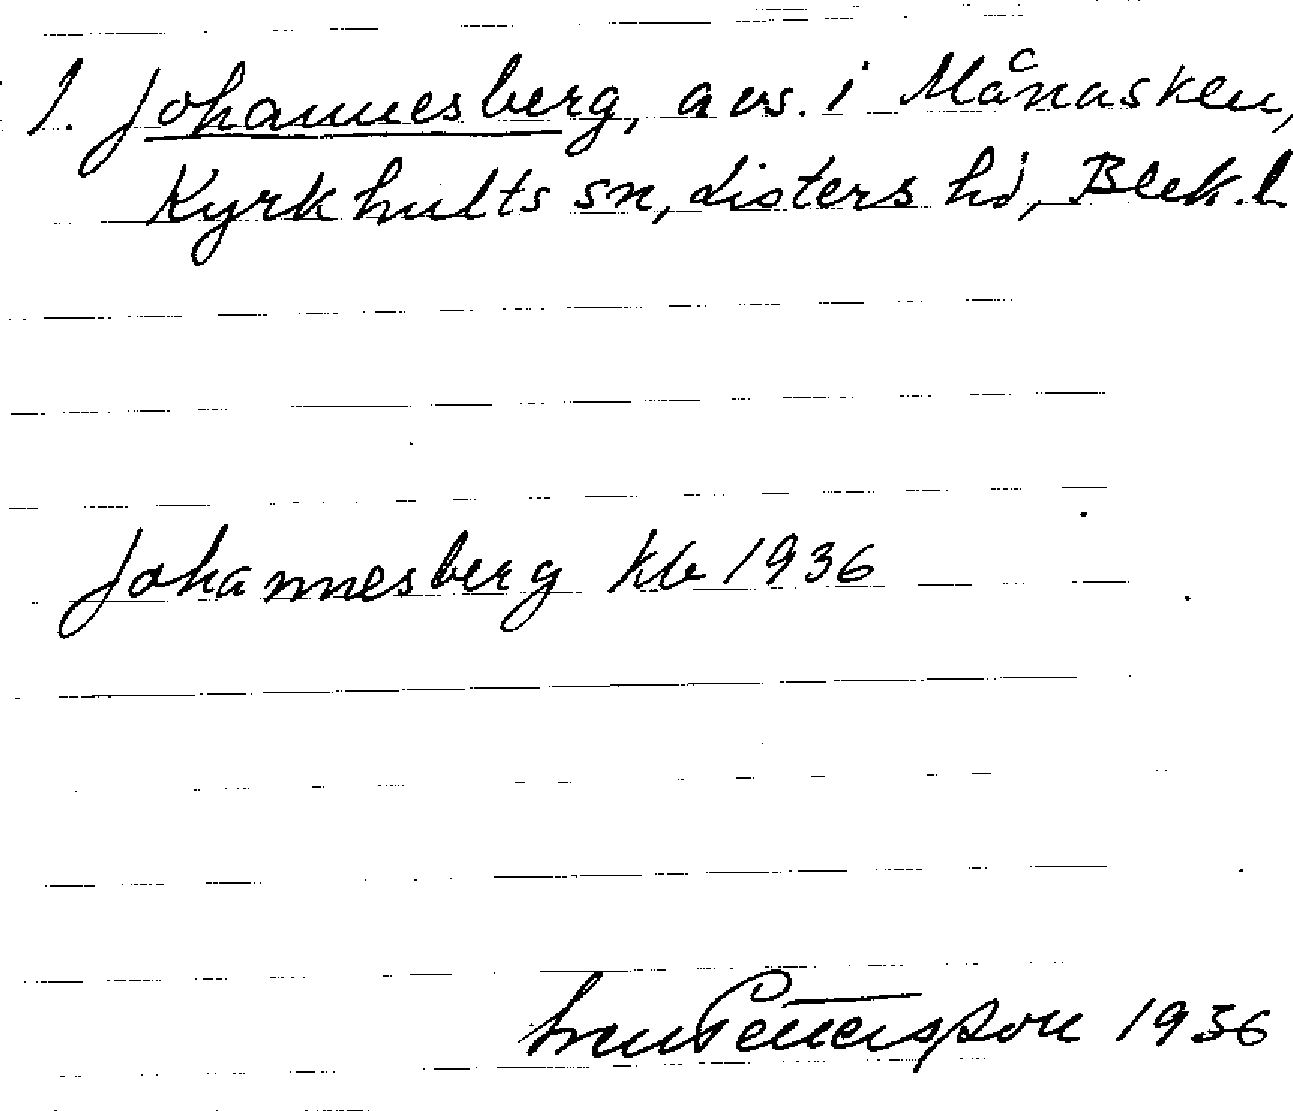 1. Johannesberg, avs. i Månasken,
Kyrkhults sn, Listers hd, Blek. l.
Johannesberg kb 1936
Pettersson 1936